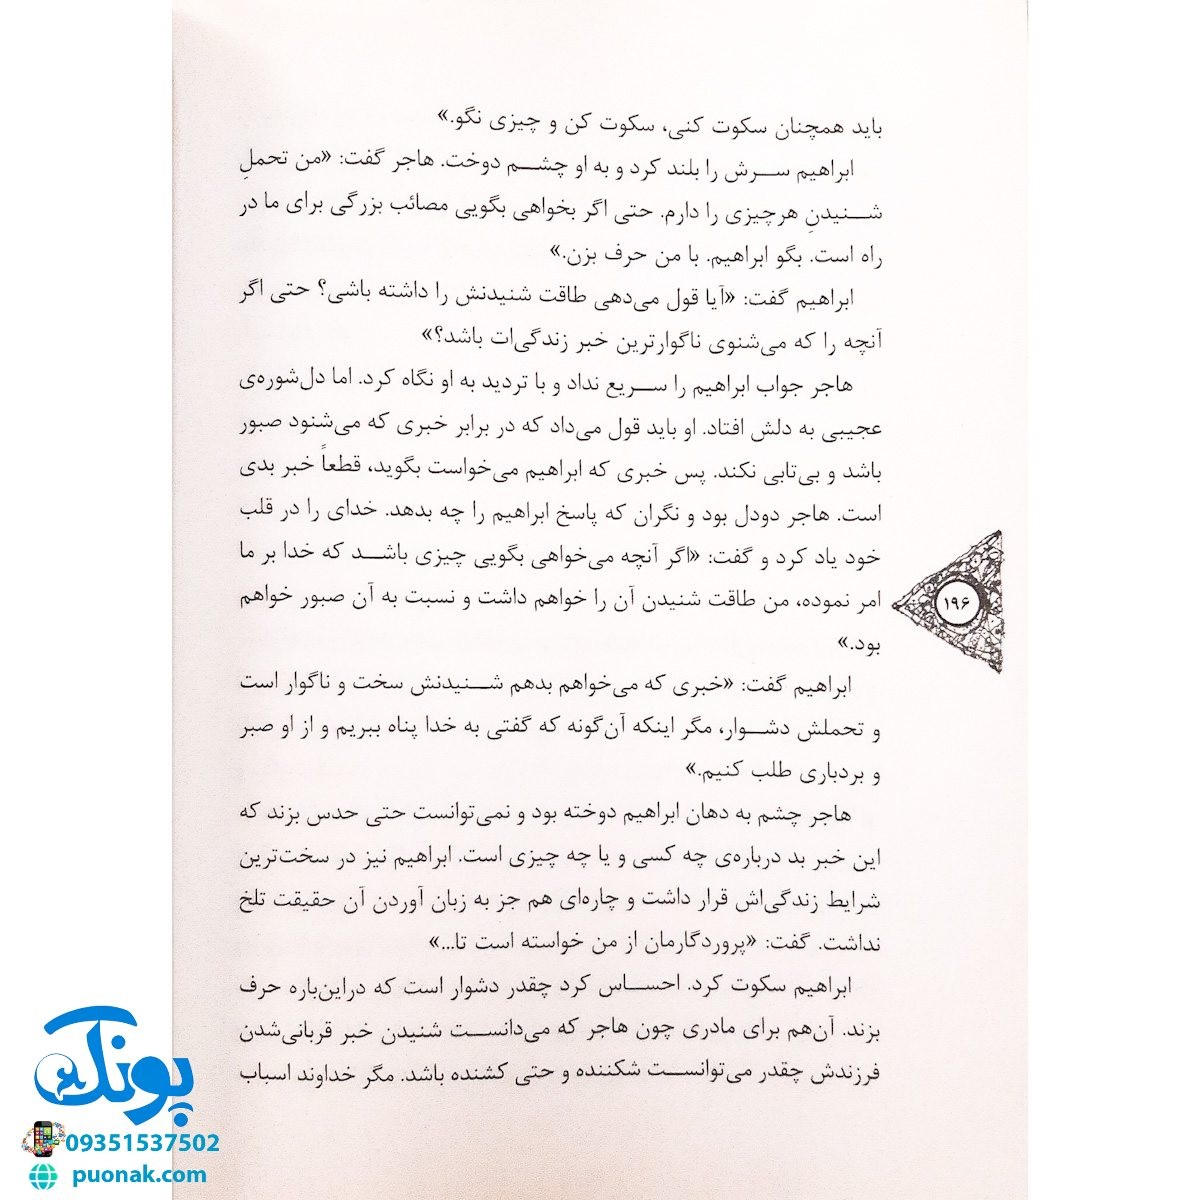 باید همچنان سکوت کنی، سکوت کن و چیزی نگو.»
ابراهیم سرش را بلند کرد و به او چشم دوخت. هاجر گفت: «من تحملِ
شنیدنِ هرچیزی را دارم. حتی اگر بخواهی بگویی مصائب بزرگی برای ما در
راه است. بگو ابراهیم. با من حرف بزن.»
ابراهیم گفت: «آیا قول می‌دهی طاقت شنیدنش را داشته باشی؟ حتی اگر
آنچه را که می‌شنوی ناگوارترین خبر زندگی‌ات باشد؟»
هاجر جواب ابراهیم را سریع نداد و با تردید به او نگاه کرد. اما دل‌شوره‌ی
عجیبی به دلش افتاد. او باید قول می‌داد که در برابر خبری که می‌شنود صبور
باشد و بی‌تابی نکند. پس خبری که ابراهیم می‌خواست بگوید، قطعاً خبر بدی
است. هاجر دودل بود و نگران که پاسخ ابراهیم را چه بدهد. خدای را در قلب
خود یاد کرد و گفت: «اگر آنچه می‌خواهی بگویی چیزی باشد که خدا بر ما
امر نموده، من طاقت شنیدن آن را خواهم داشت و نسبت به آن صبور خواهم
بود.»
۱۹۶
ابراهیم گفت: «خبری که می‌خواهم بدهم شنیدنش سخت و ناگوار است
و تحملش دشوار، مگر اینکه آن‌گونه که گفتی به خدا پناه ببریم و از او صبر
و بردباری طلب کنیم.»
هاجر چشم به دهان ابراهیم دوخته بود و نمی‌توانست حتی حدس بزند که
این خبر بد درباره‌ی چه کسی و یا چه چیزی است. ابراهیم نیز در سخت‌ترین
شرایط زندگی‌اش قرار داشت و چاره‌ای هم جز به زبان آوردن آن حقیقت تلخ
نداشت. گفت: «پروردگارمان از من خواسته است تا...»
ابراهیم سکوت کرد. احساس کرد چقدر دشوار است که دراین‌باره حرف
بزند. آن‌هم برای مادری چون هاجر که می‌دانست شنیدن خبر قربانی‌شدن
فرزندش چقدر می‌توانست شکننده و حتی کشنده باشد. مگر خداوند اسباب
پونک
09351537502
puonak.com